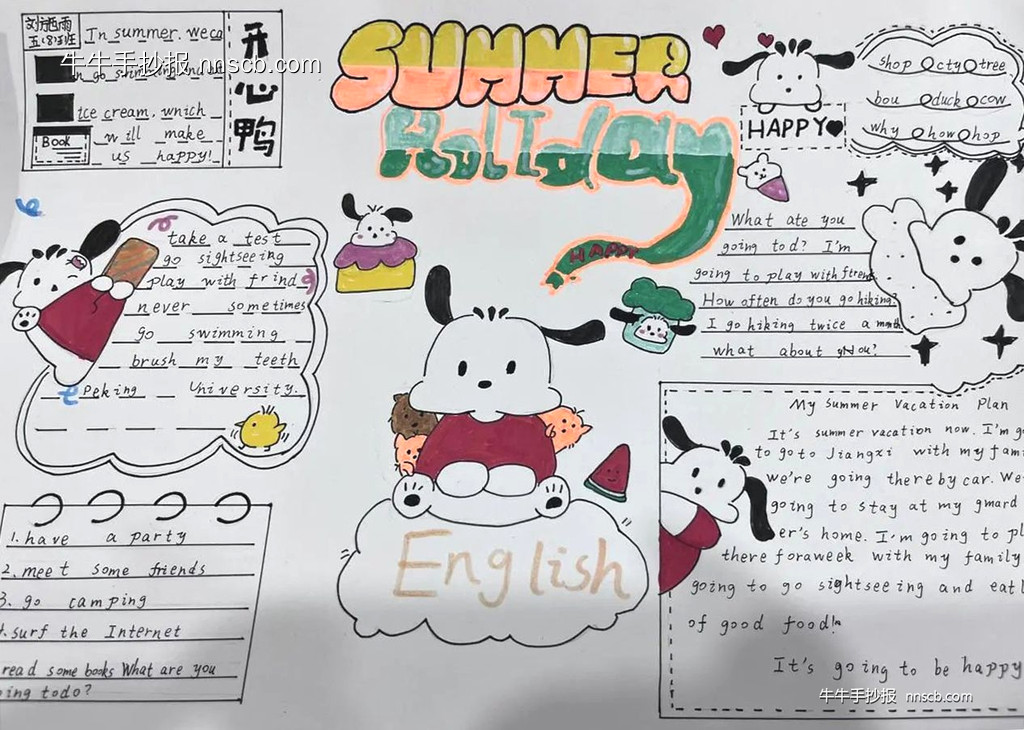 刘洒雨
五(8)班
In summer. we ca
go swimming and eat
ice cream. which
will make
us happy!
Book
开心鸭
牛牛手抄报 nnscb.com
SUMMER
HoLIday
HAPPY
HAPPY
shop cty tree
bou duck cow
why how hop
take a test
go sightseeing
play with frind
never sometimes
go swimming
brush my teeth
Peking University.
What ate you
going to d? I'm
going to play with
How often do you go hiking?
I go hiking twice a
what about you?
English
1. have a party
2. meet some friends
3. go camping
4. surf the Internet
read some books What are you
oing todo?
My Summer Vacation Plan
It's summer vacation now. I'm g
to go to Jiangxi with my fam
we're going there by car. We
going to stay at my gmard
er's home. I'm going to pl
there foraweek with my family
going to go sightseeing and eat
of good food!
It's going to be happy
牛牛手抄报 nnscb.com